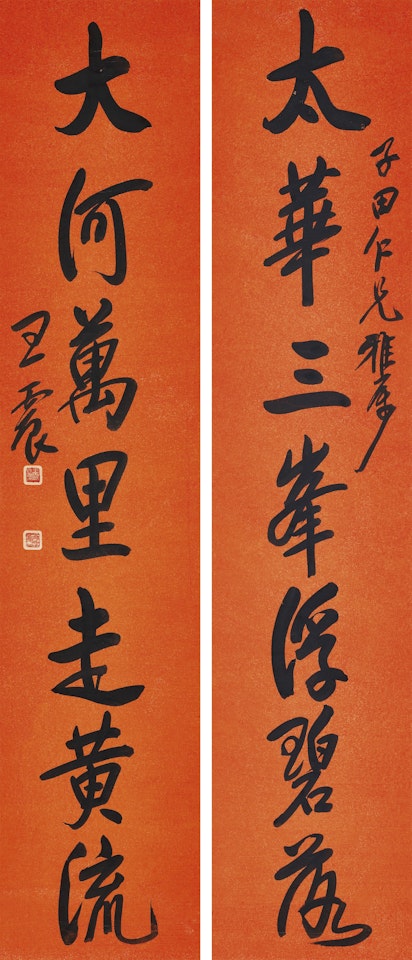 太華三峯浮碧落
子田仁兄雅属
大河萬里走黄流
王震